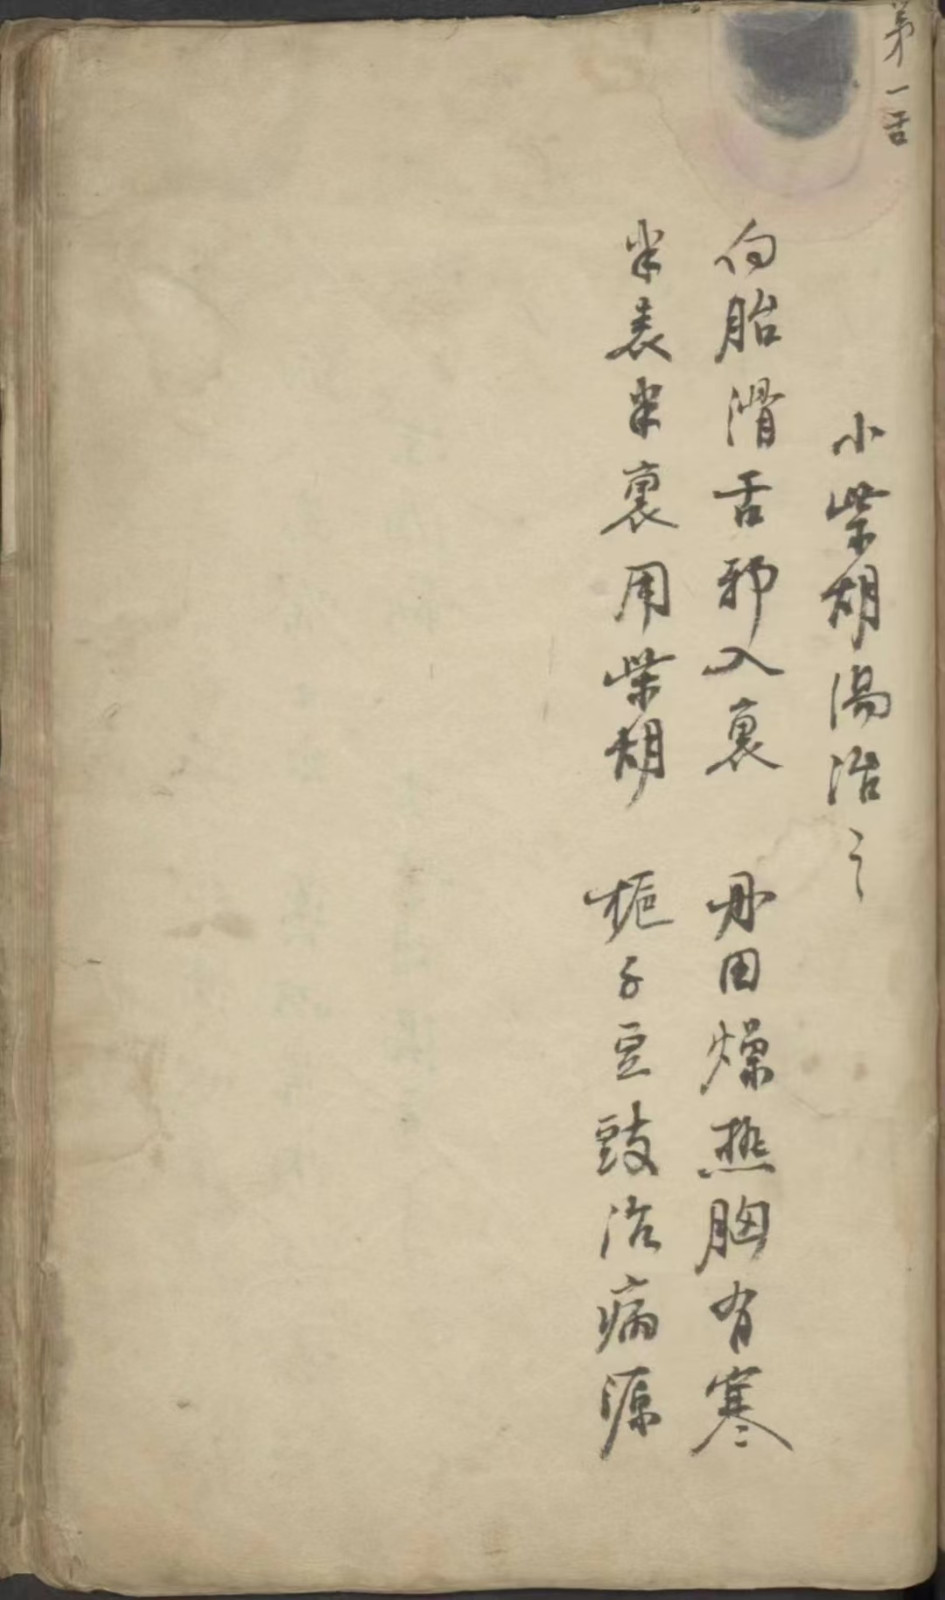 第一舌
小柴胡湯治之
白胎滑舌邪入裏　丹田燥熱胸有寒
半表半裏用柴胡　梔子豆豉治病源